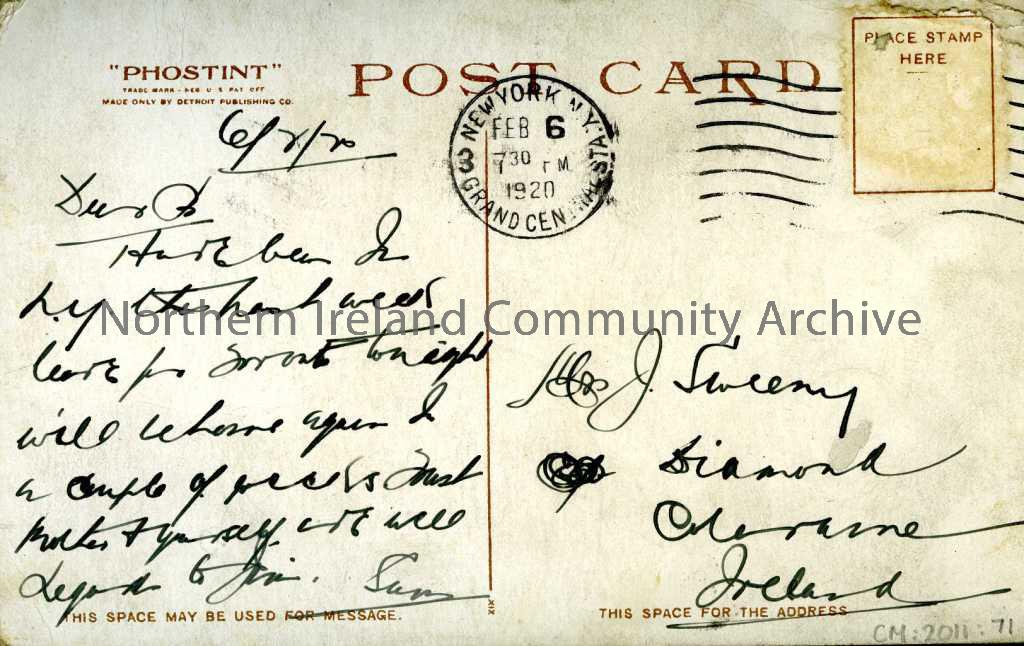 "PHOSTINT"
TRADE MARK - REG U S PAT OFF
MADE ONLY BY DETROIT PUBLISHING CO.
POST CARD
PLACE STAMP
HERE
NEW YORK, N.Y.
GRAND CENTRAL STA.
3
FEB 6
730 PM
1920
6/2/20
Dear
Have been In
N.Y. the past week
leave for Toronto tonight
will be home again In
a couple of weeks Trust
Mother & yourself are well
Regards to Jim. Sam
THIS SPACE MAY BE USED FOR MESSAGE.
XIX
Mrs J. Sweeny
Diamond
Coleraine
Ireland
THIS SPACE FOR THE ADDRESS
Northern Ireland Community Archive
CM:2011:71